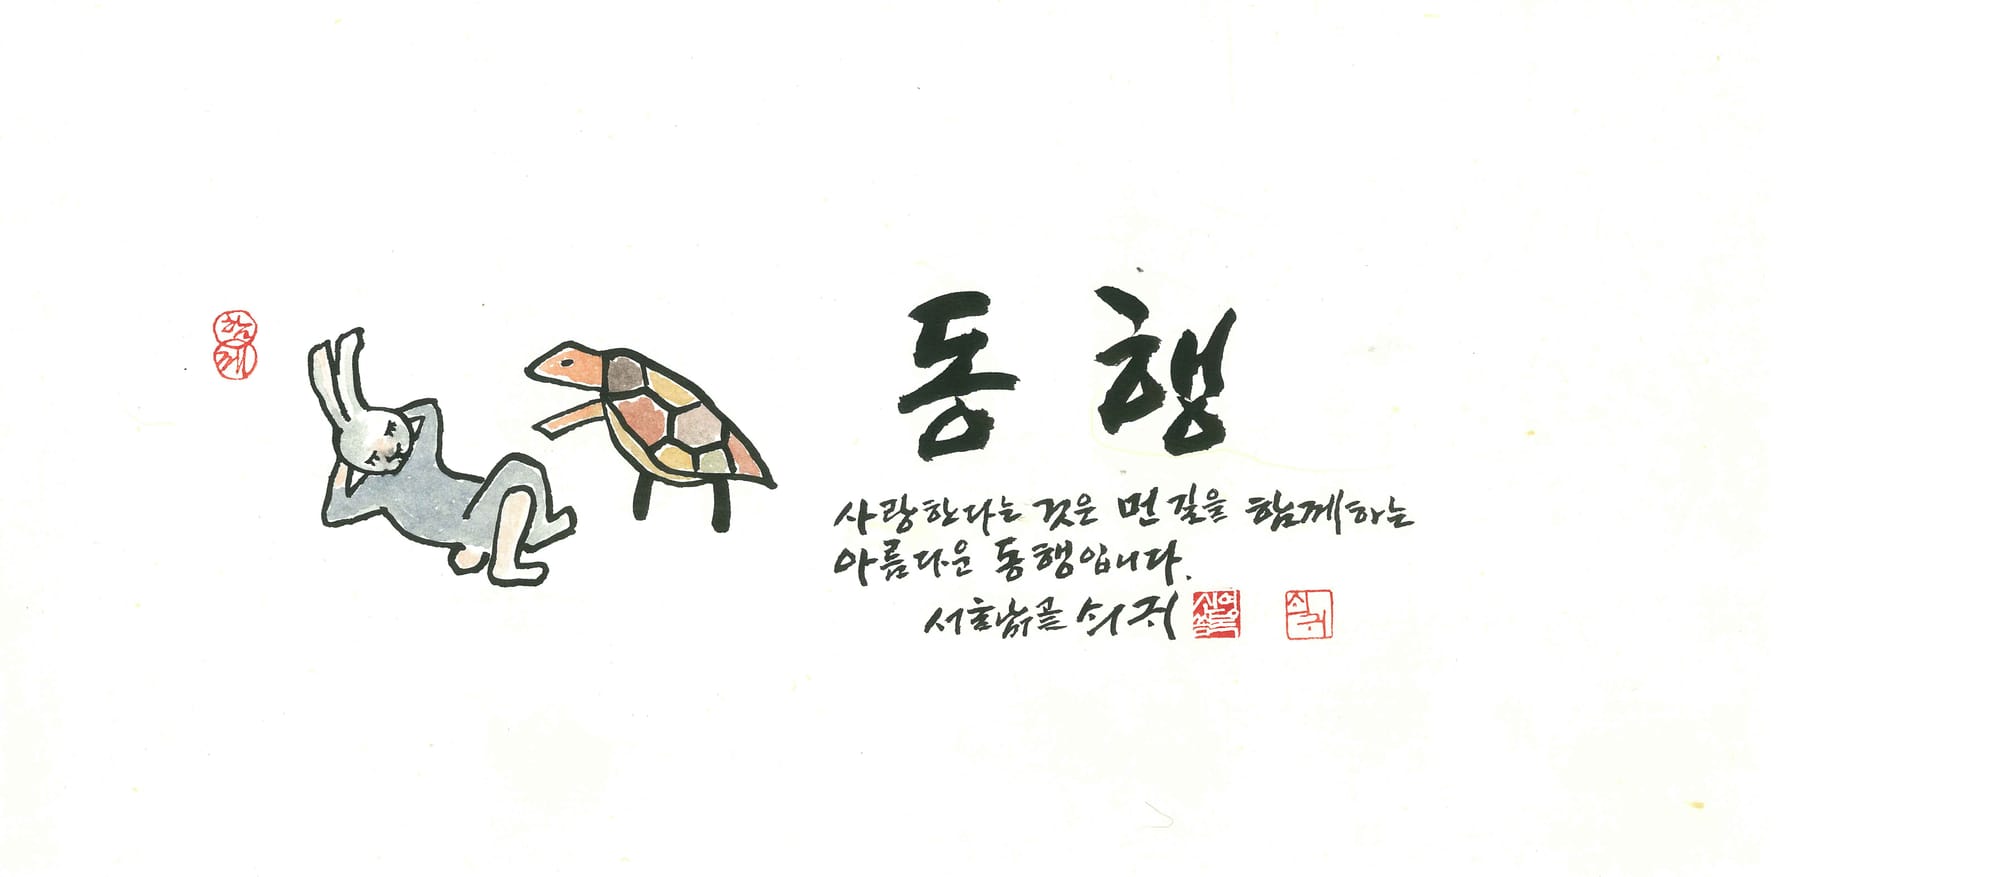 함께
동행
사랑한다는 것은 먼길을 함께하는
아름다운 동행입니다.
쇠귀